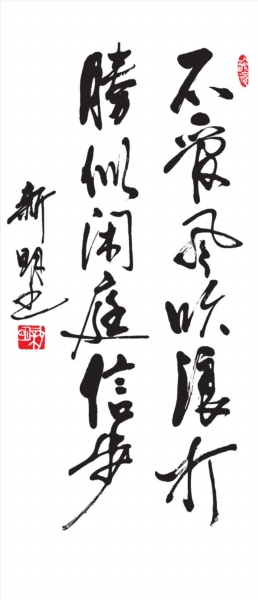 不管风吹浪打
勝似闲庭信步
新明书